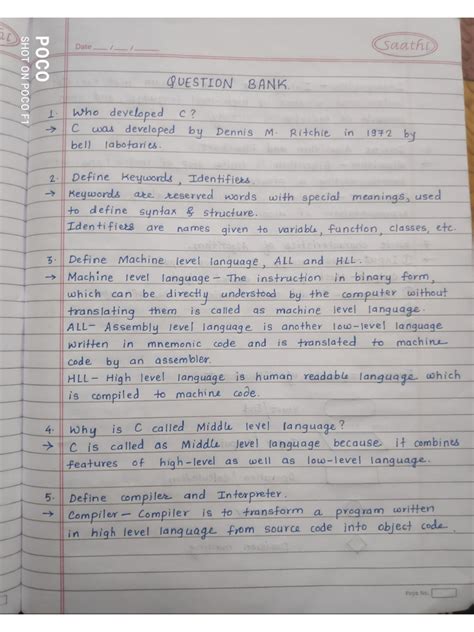 Date / /
Saathi
POCO
SHOT ON POCO F1
QUESTION BANK
1. Who developed C?
→ C was developed by Dennis M. Ritchie in 1972 by
bell labotaries.
2. Define Keywords, Identifiers.
→ Keywords are reserved words with special meanings, used
to define syntax & structure.
Identifiers are names given to variable, function, classes, etc.
3. Define Machine level language, ALL and HLL.
→ Machine level language - The instruction in binary form,
which can be directly understood by the computer without
translating them is called as machine level language.
ALL- Assembly level language is another low-level language
written in mnemonic code and is translated to machine
code by an assembler.
HLL- High level language is human readable language which
is compiled to machine code.
4. Why is C called Middle level language?
→ C is called as Middle level language because it combines
features of high-level as well as low-level language.
5. Define compiler and Interpreter.
→ Compiler- Compiler is to transform a program written
in high level language from source code into object code.
Page No.